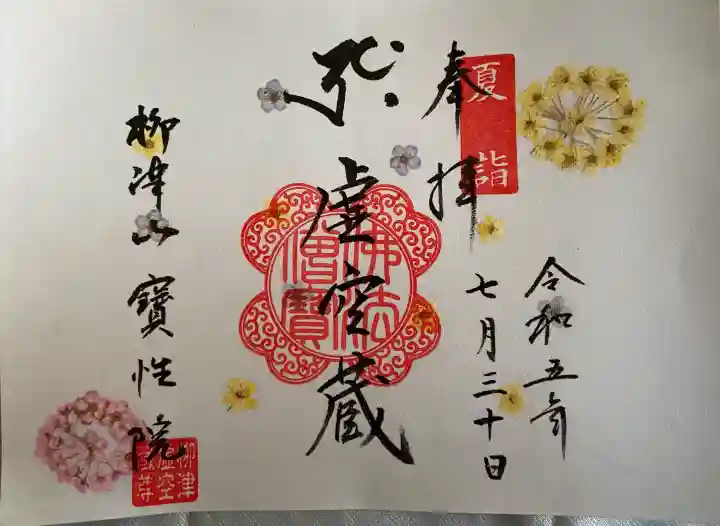 夏詣
奉拝
令和五年
七月三十日
虚空蔵
佛法僧寶
柳津山 寳性院
柳津
虚空
蔵尊